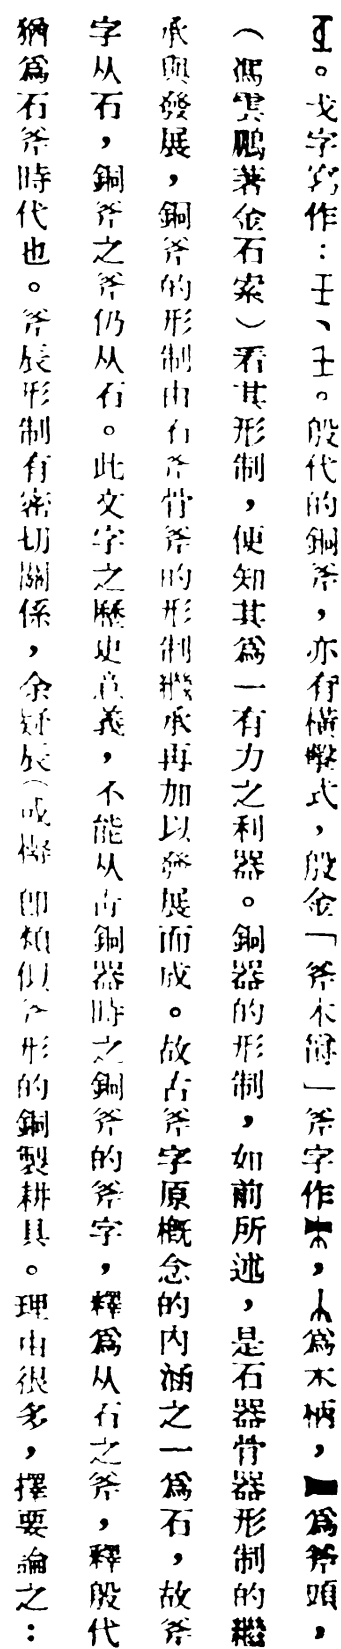 。戈字寫作：王、王。殷代的銅斧，亦有橫擊式，殷金「斧木簠」斧字作，為木柄，為斧頭，
（馮雲鵬著金石索）看其形制，便知其為一有力之利器。銅器的形制，如前所述，是石器骨器形制的繼
承與發展，銅斧的形制由石斧骨斧的形制繼承再加以發展而成。故古斧字原概念的內涵之一為石，故斧
字从石，銅斧之斧仍从石。此文字之歷史意義，不能从古銅器時之銅斧的斧字，釋為从石之斧，釋殷代
猶為石斧時代也。斧辰形制有密切關係，余疑辰（或櫌即類似斧形的銅製耕具。理由很多，擇要論之：